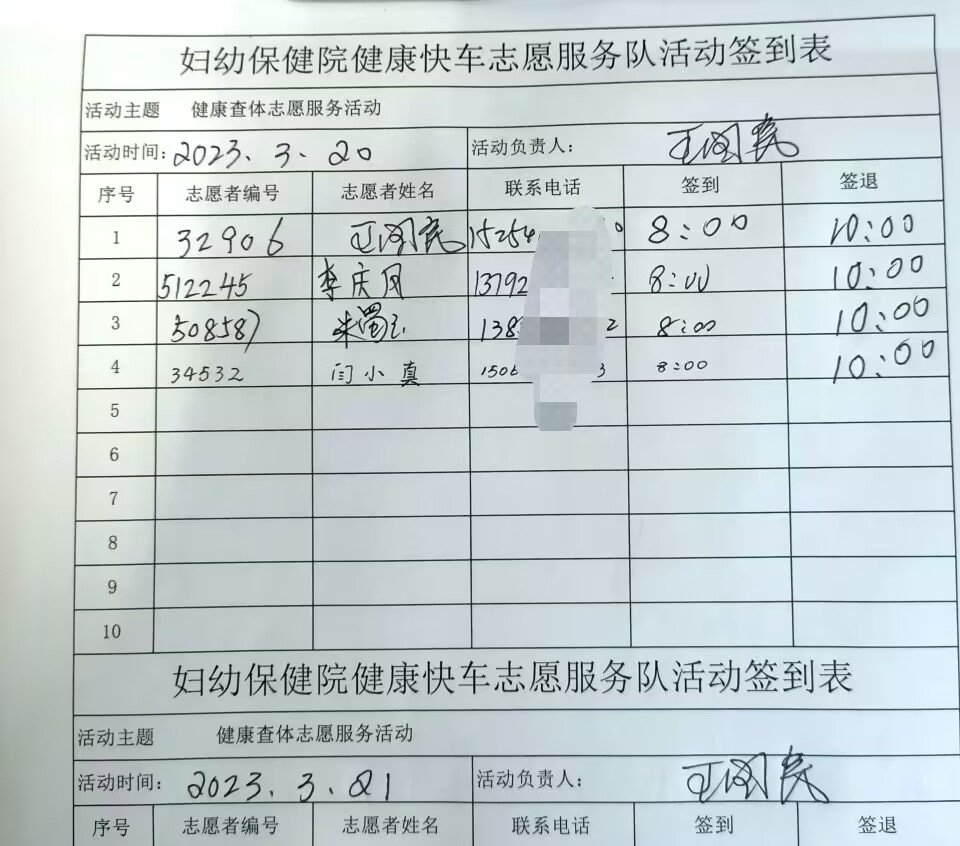 妇幼保健院健康快车志愿服务队活动签到表
活动主题 健康查体志愿服务活动
活动时间: 2023.3.20 活动负责人:
序号 志愿者编号 志愿者姓名 联系电话 签到 签退
1 32906 15254 0 8:00 10:00
2 512245 李庆凤 13792 8:00 10:00
3 508587 138 2 8:00 10:00
4 34532 闫小真 150 3 8:00 10:00
5
6
7
8
9
10
妇幼保健院健康快车志愿服务队活动签到表
活动主题 健康查体志愿服务活动
活动时间: 2023.3.21 活动负责人:
序号 志愿者编号 志愿者姓名 联系电话 签到 签退